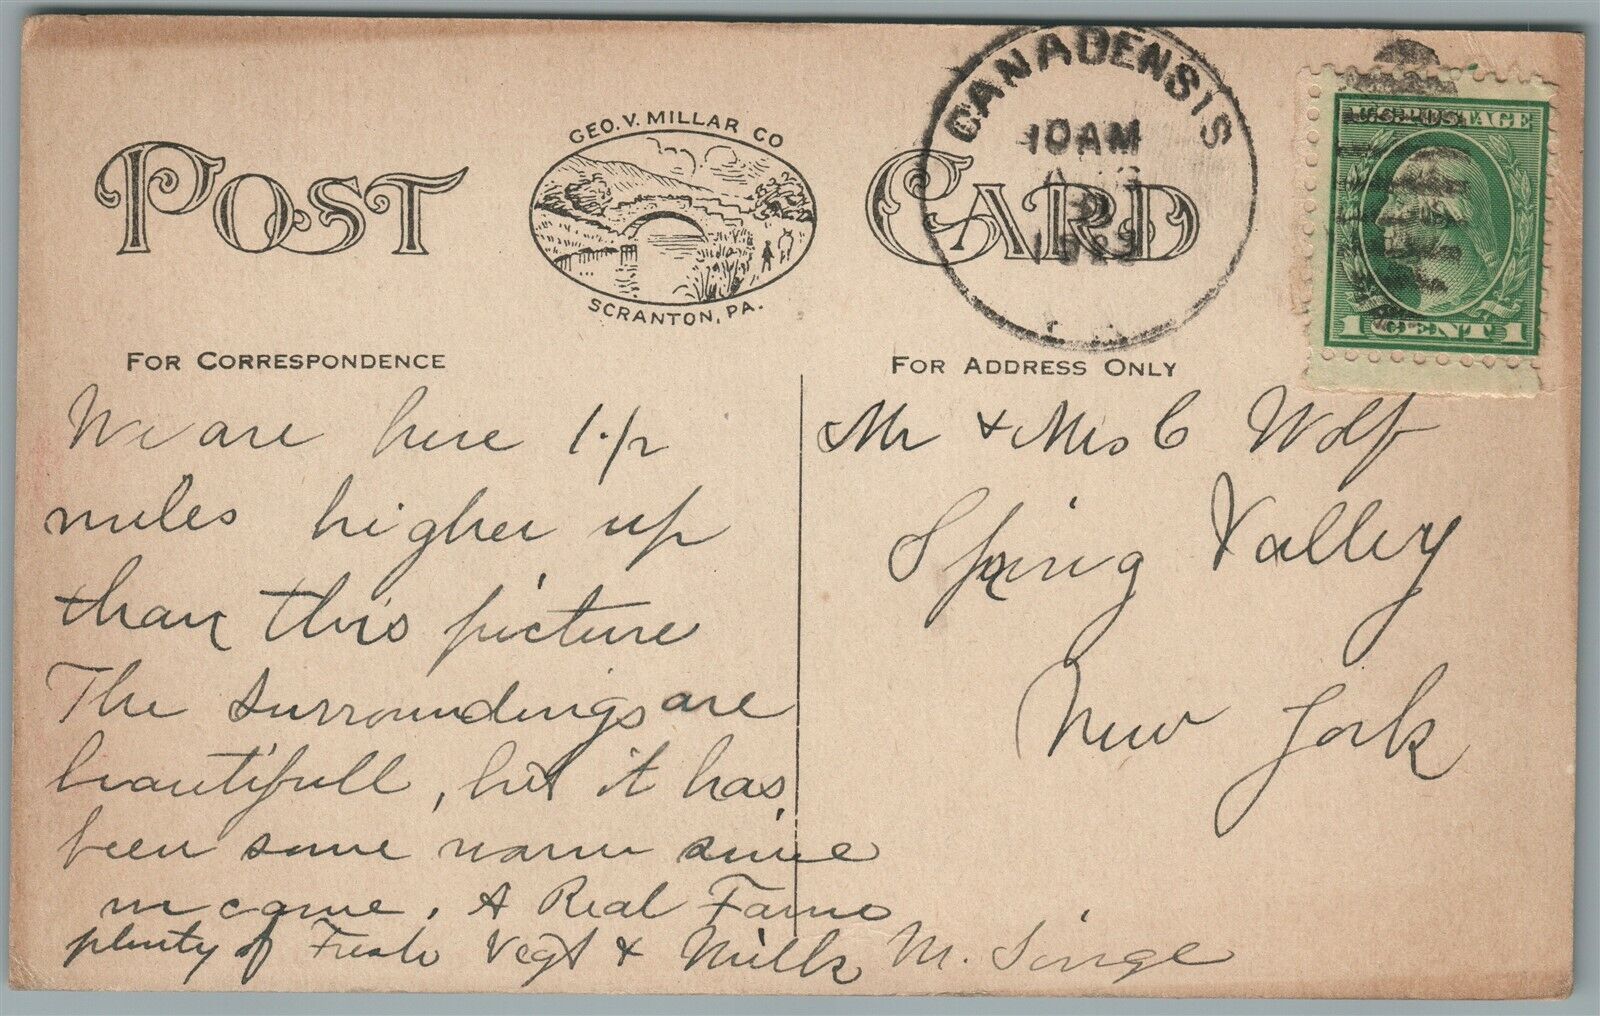 GEO. V. MILLAR CO
POST CARD
SCRANTON, PA.
CANADENSIS
10 AM
U.S. POSTAGE
1 CENT 1
FOR CORRESPONDENCE
FOR ADDRESS ONLY
We are here 1 1/2
miles higher up
than this picture
The surroundings are
beautifull, but it has
been some warm since
we came. A Real Farm
plenty of Fresh Vegt & Milk M.
Mr & Mrs C Wolf
Spring Valley
New York